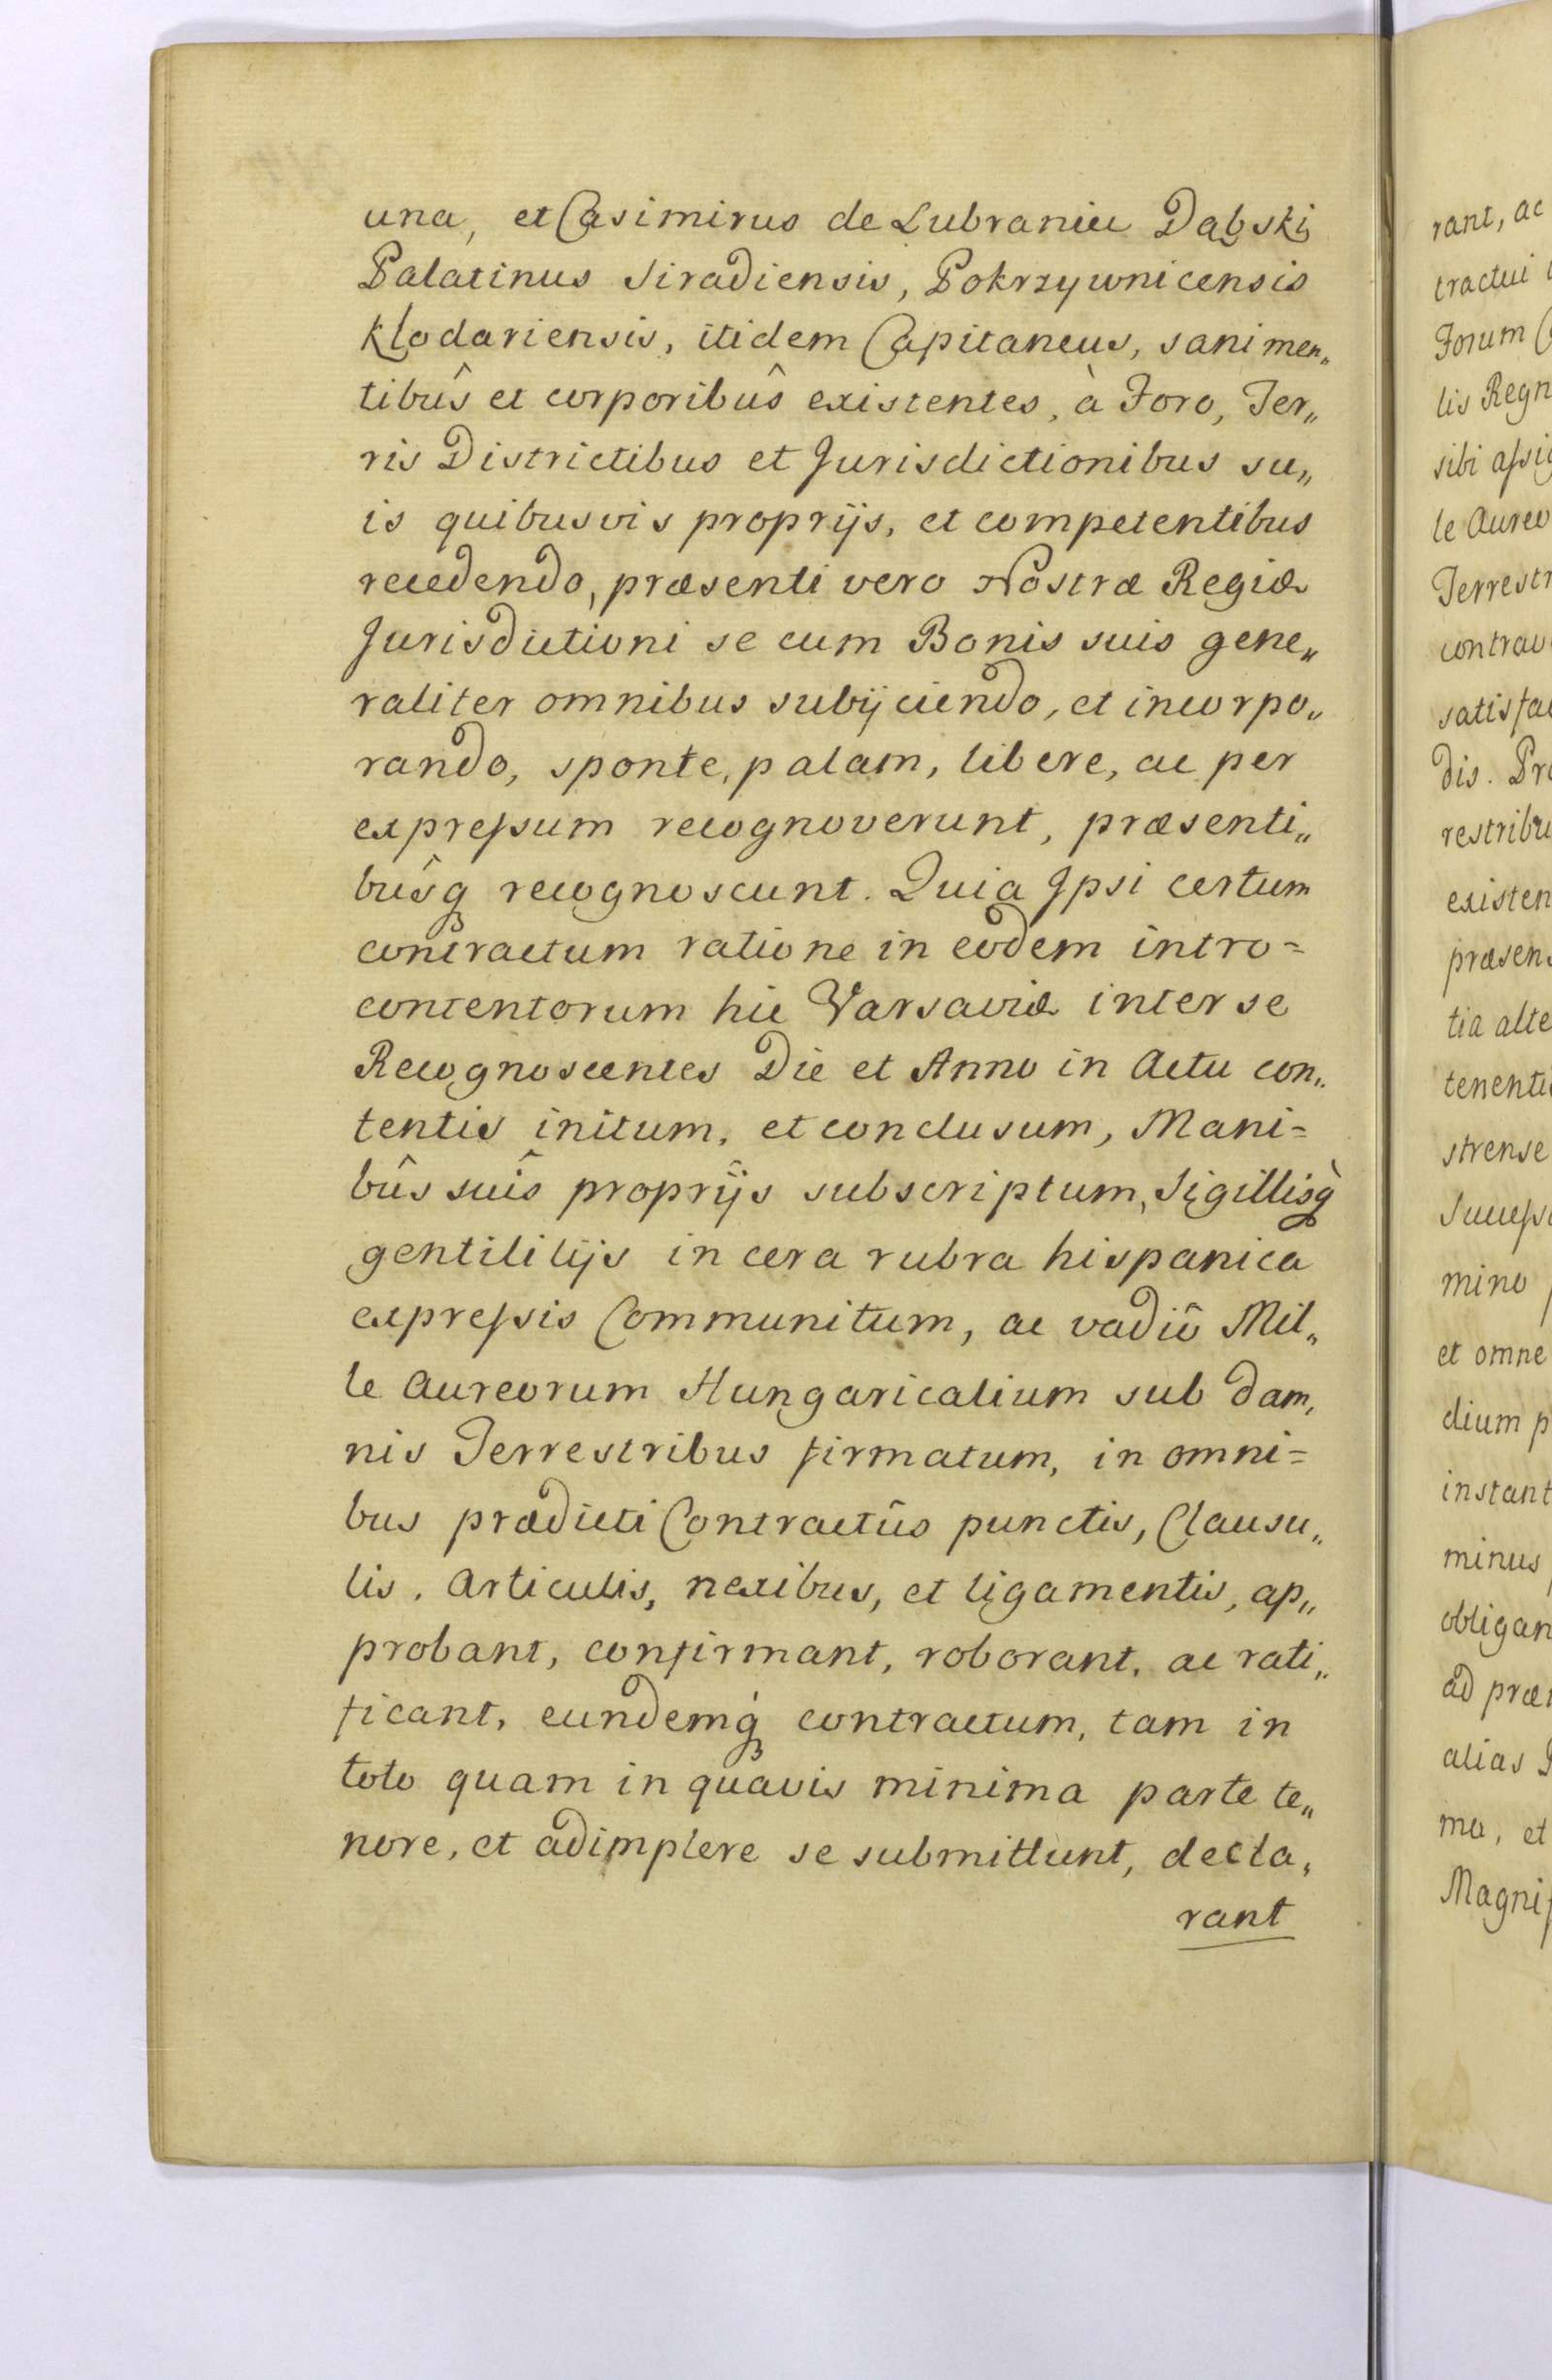 una, et Casimirus de Lubraniec Dąbski
Palatinus Siradiensis, Pokrzywnicensis
Klodaviensis, itidem Capitaneus, sani men„
tibûs et corporibûs existentes, à Foro, Ter„
ris Districtibus et Jurisdictionibus su„
is quibusvis proprijs, et competentibus
recedendo, præsenti vero Nostræ Regiæ
Jurisdictioni se cum Bonis suis gene„
raliter omnibus subijciendo, et incorpo„
rando, sponte, palam, libere, ac per
expressum recognoverunt, præsenti„
bûsq recognoscunt. Quia Ipsi certum
contractum ratione in eodem intro=
contentorum hic Varsaviæ inter se
Recognoscentes Die et Anno in Actu con„
tentis initum, et conclusum, Mani=
bûs suîs proprijs subscriptum, Sigillisq̀
gentilitijs in cera rubra hispanica
expressis Communitum, ac vadiô Mil„
le Aureorum Hungaricalium sub dam„
nis Terrestribus firmatum, in omni=
bus prædicti Contractûs punctis, Clausu„
lis, Articulis, nexibus, et ligamentis, ap„
probant, confirmant, roborant, ac rati„
ficant, eundemq́ contractum, tam in
toto quam in quavis minima parte te„
nere, et adimplere se submittunt, decla„
rant
rant, ac
tractui
Forum
lis Regn
sibi assig
le Aureo
Terrestr
contrav
satisfac
dis. Pr
restribu
existen
præsen
tia alte
tenenti
strense
Success
mino
et omne
dium p
instant
minus
obligan
ad præ
alias
ma, et
Magnif